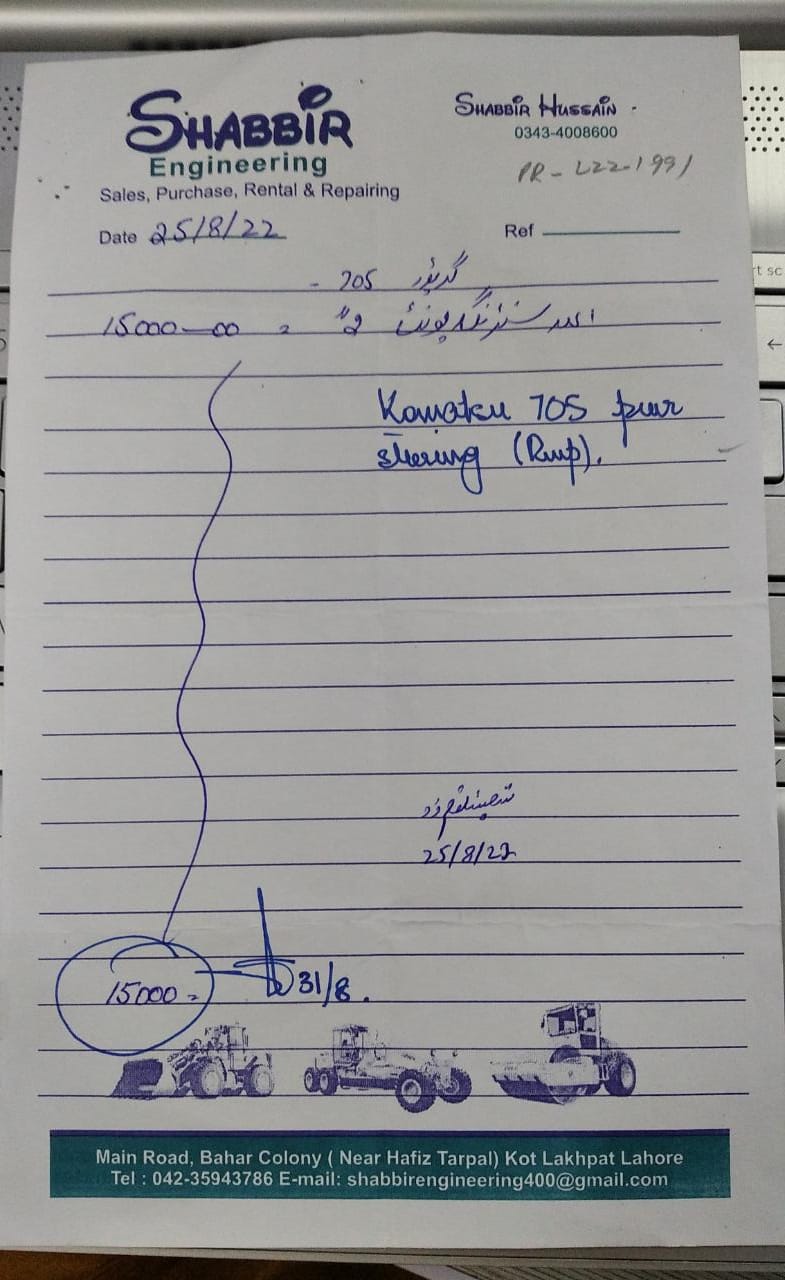 SHABBIR
Engineering
Sales, Purchase, Rental & Repairing
SHABBIR HUSSAIN
0343-4008600
PR - L22-1991
Date 25/8/22
Ref
گریڈر 705 -
سٹیرنگ 2 = 15000-00
Komatsu 705 pwr
steering (Rwp).
25/8/22
15000 =
31/8.
Main Road, Bahar Colony ( Near Hafiz Tarpal) Kot Lakhpat Lahore
Tel : 042-35943786 E-mail: shabbirengineering400@gmail.com